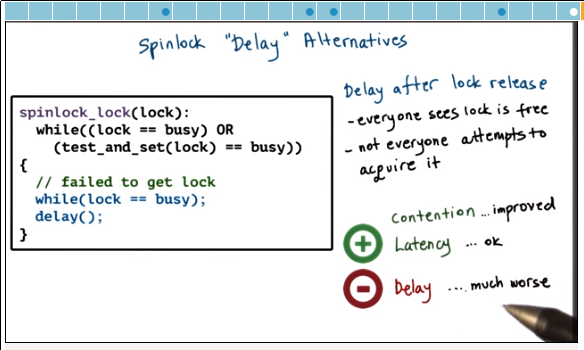 Spinlock "Delay" Alternatives
spinlock_lock(lock):
while((lock == busy) OR
(test_and_set(lock) == busy))
{
// failed to get lock
while(lock == busy);
delay();
}
Delay after lock release
- everyone sees lock is free
- not everyone attempts to
acquire it
Contention ... improved
+ Latency ... ok
- Delay .... much worse